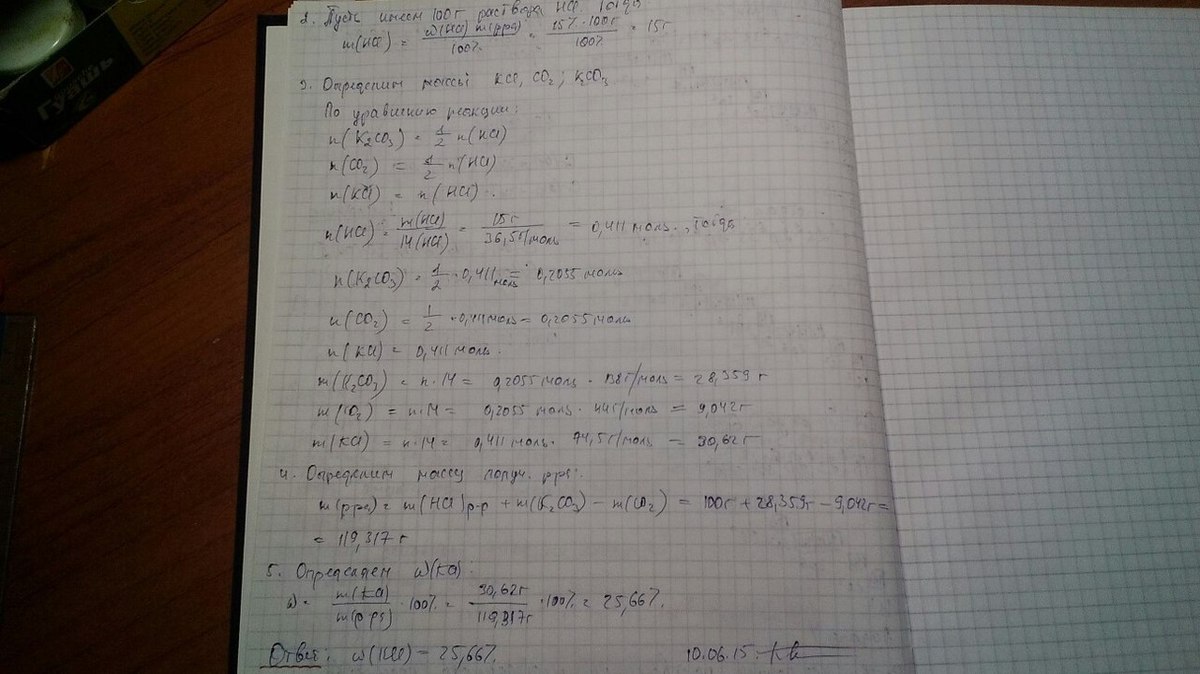 Гуашь
2. Пусть имеем 100г раствора HCl. Тогда
m(HCl) = w(HCl) m(р-ра) / 100% = 15% · 100г / 100% = 15г
3. Определим массы KCl, CO₂; K₂CO₃
По уравнению реакции:
n(K₂CO₃) = 1/2 n(HCl)
n(CO₂) = 1/2 n(HCl)
n(KCl) = n(HCl).
n(HCl) = m(HCl) / M(HCl) = 15г / 36,5г/моль = 0,411 моль., Тогда
n(K₂CO₃) = 1/2 · 0,411 моль = 0,2055 моль
n(CO₂) = 1/2 · 0,411 моль = 0,2055 моль
n(KCl) = 0,411 моль.
m(K₂CO₃) = n·M = 0,2055 моль · 138г/моль = 28,359 г
m(CO₂) = n·M = 0,2055 моль · 44г/моль = 9,042г
m(KCl) = n·M = 0,411 моль · 74,5г/моль = 30,62г
4. Определим массу получ. р-ра:
m(р-ра) = m(HCl)р-р + m(K₂CO₃) − m(CO₂) = 100г + 28,359г − 9,042г =
= 119,317 г
5. Определим w(KCl):
w = m(KCl) / m(р-ра) · 100% = 30,62г / 119,317г · 100% = 25,66%.
Ответ: w(KCl) = 25,66%. 10.06.15.